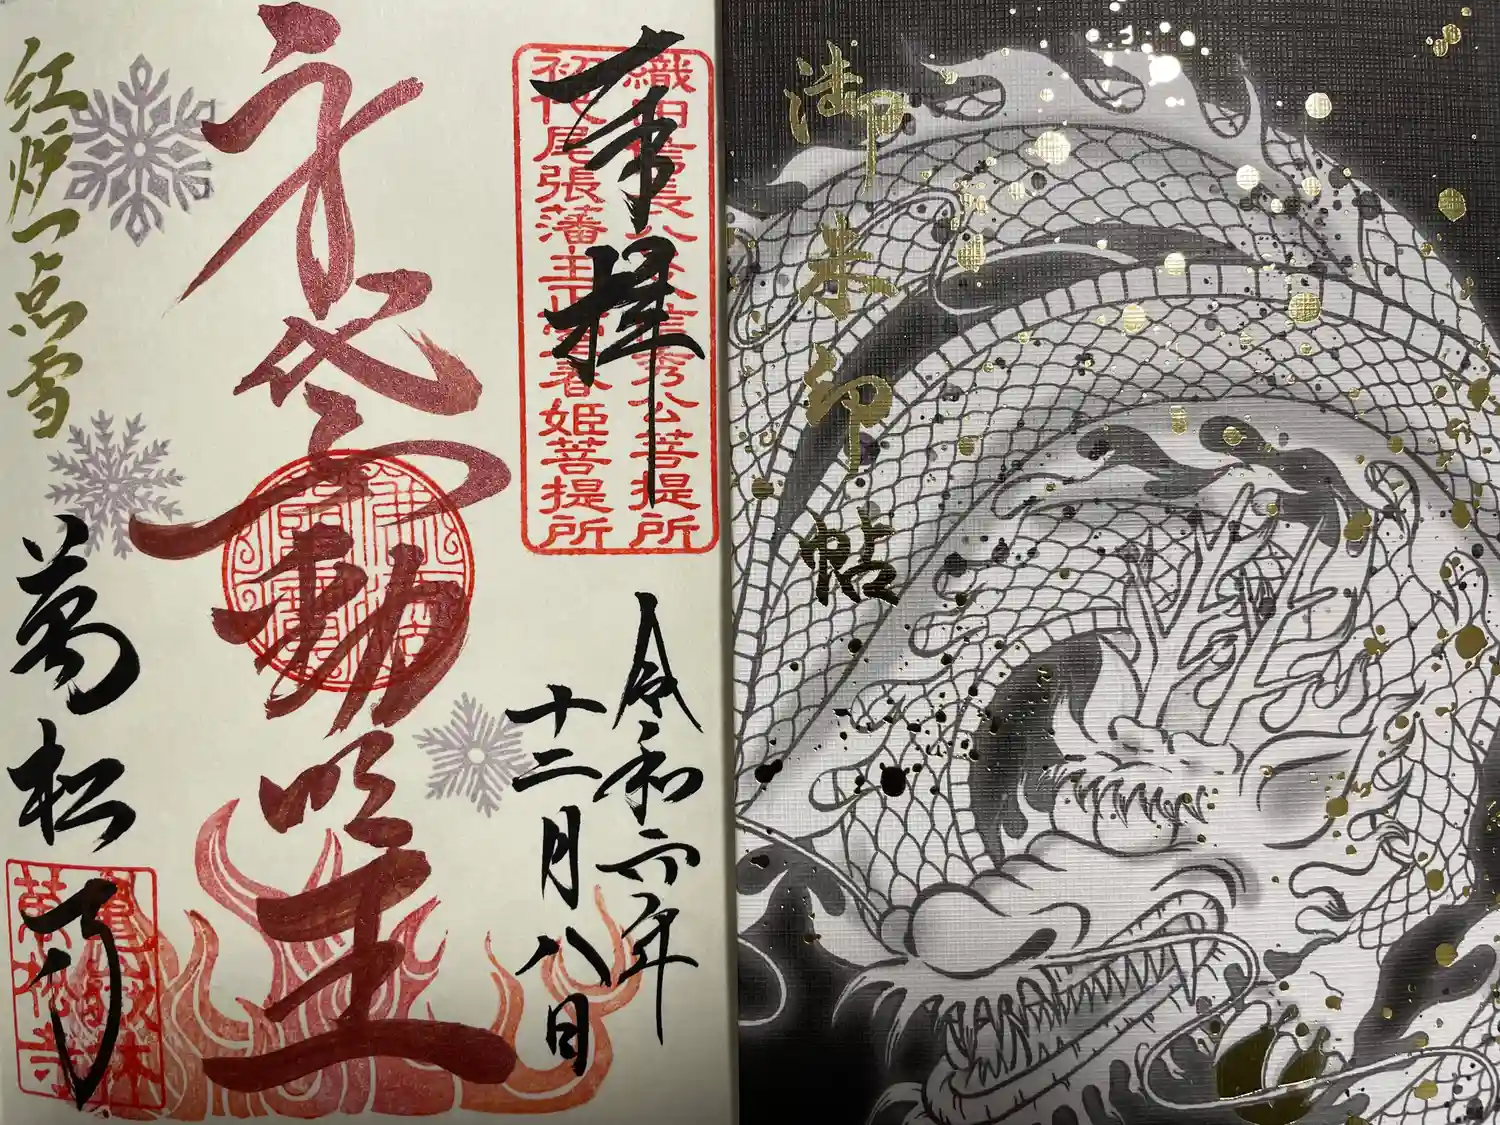 奉拝
織田信長公父信秀公菩提所
初代尾張藩主正室春姫菩提所
令和六年
十二月八日
身代不動明王
紅炉一点雪
萬松寺
亀嶽林
萬松寺
御朱印帖